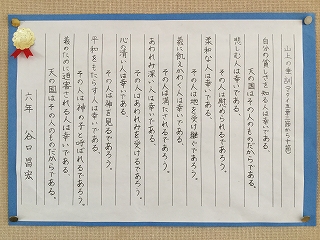 山上の垂訓(マタイ五章三節から十節)
自分の貧しさを知る人は幸いである。
天の国はその人のものだからである。
悲しむ人は幸いである。
その人は慰められるであろう。
柔和な人は幸いである。
その人は地を受け継ぐであろう。
義に飢えかわく人は幸いである。
その人は満たされるであろう。
あわれみ深い人は幸いである。
その人はあわれみを受けるであろう。
心の清い人は幸いである。
その人は神を見るであろう。
平和をもたらす人は幸いである。
その人は神の子と呼ばれるであろう。
義のために迫害される人は幸いである。
天の国はその人のものだからである。
六年 谷口昌宏